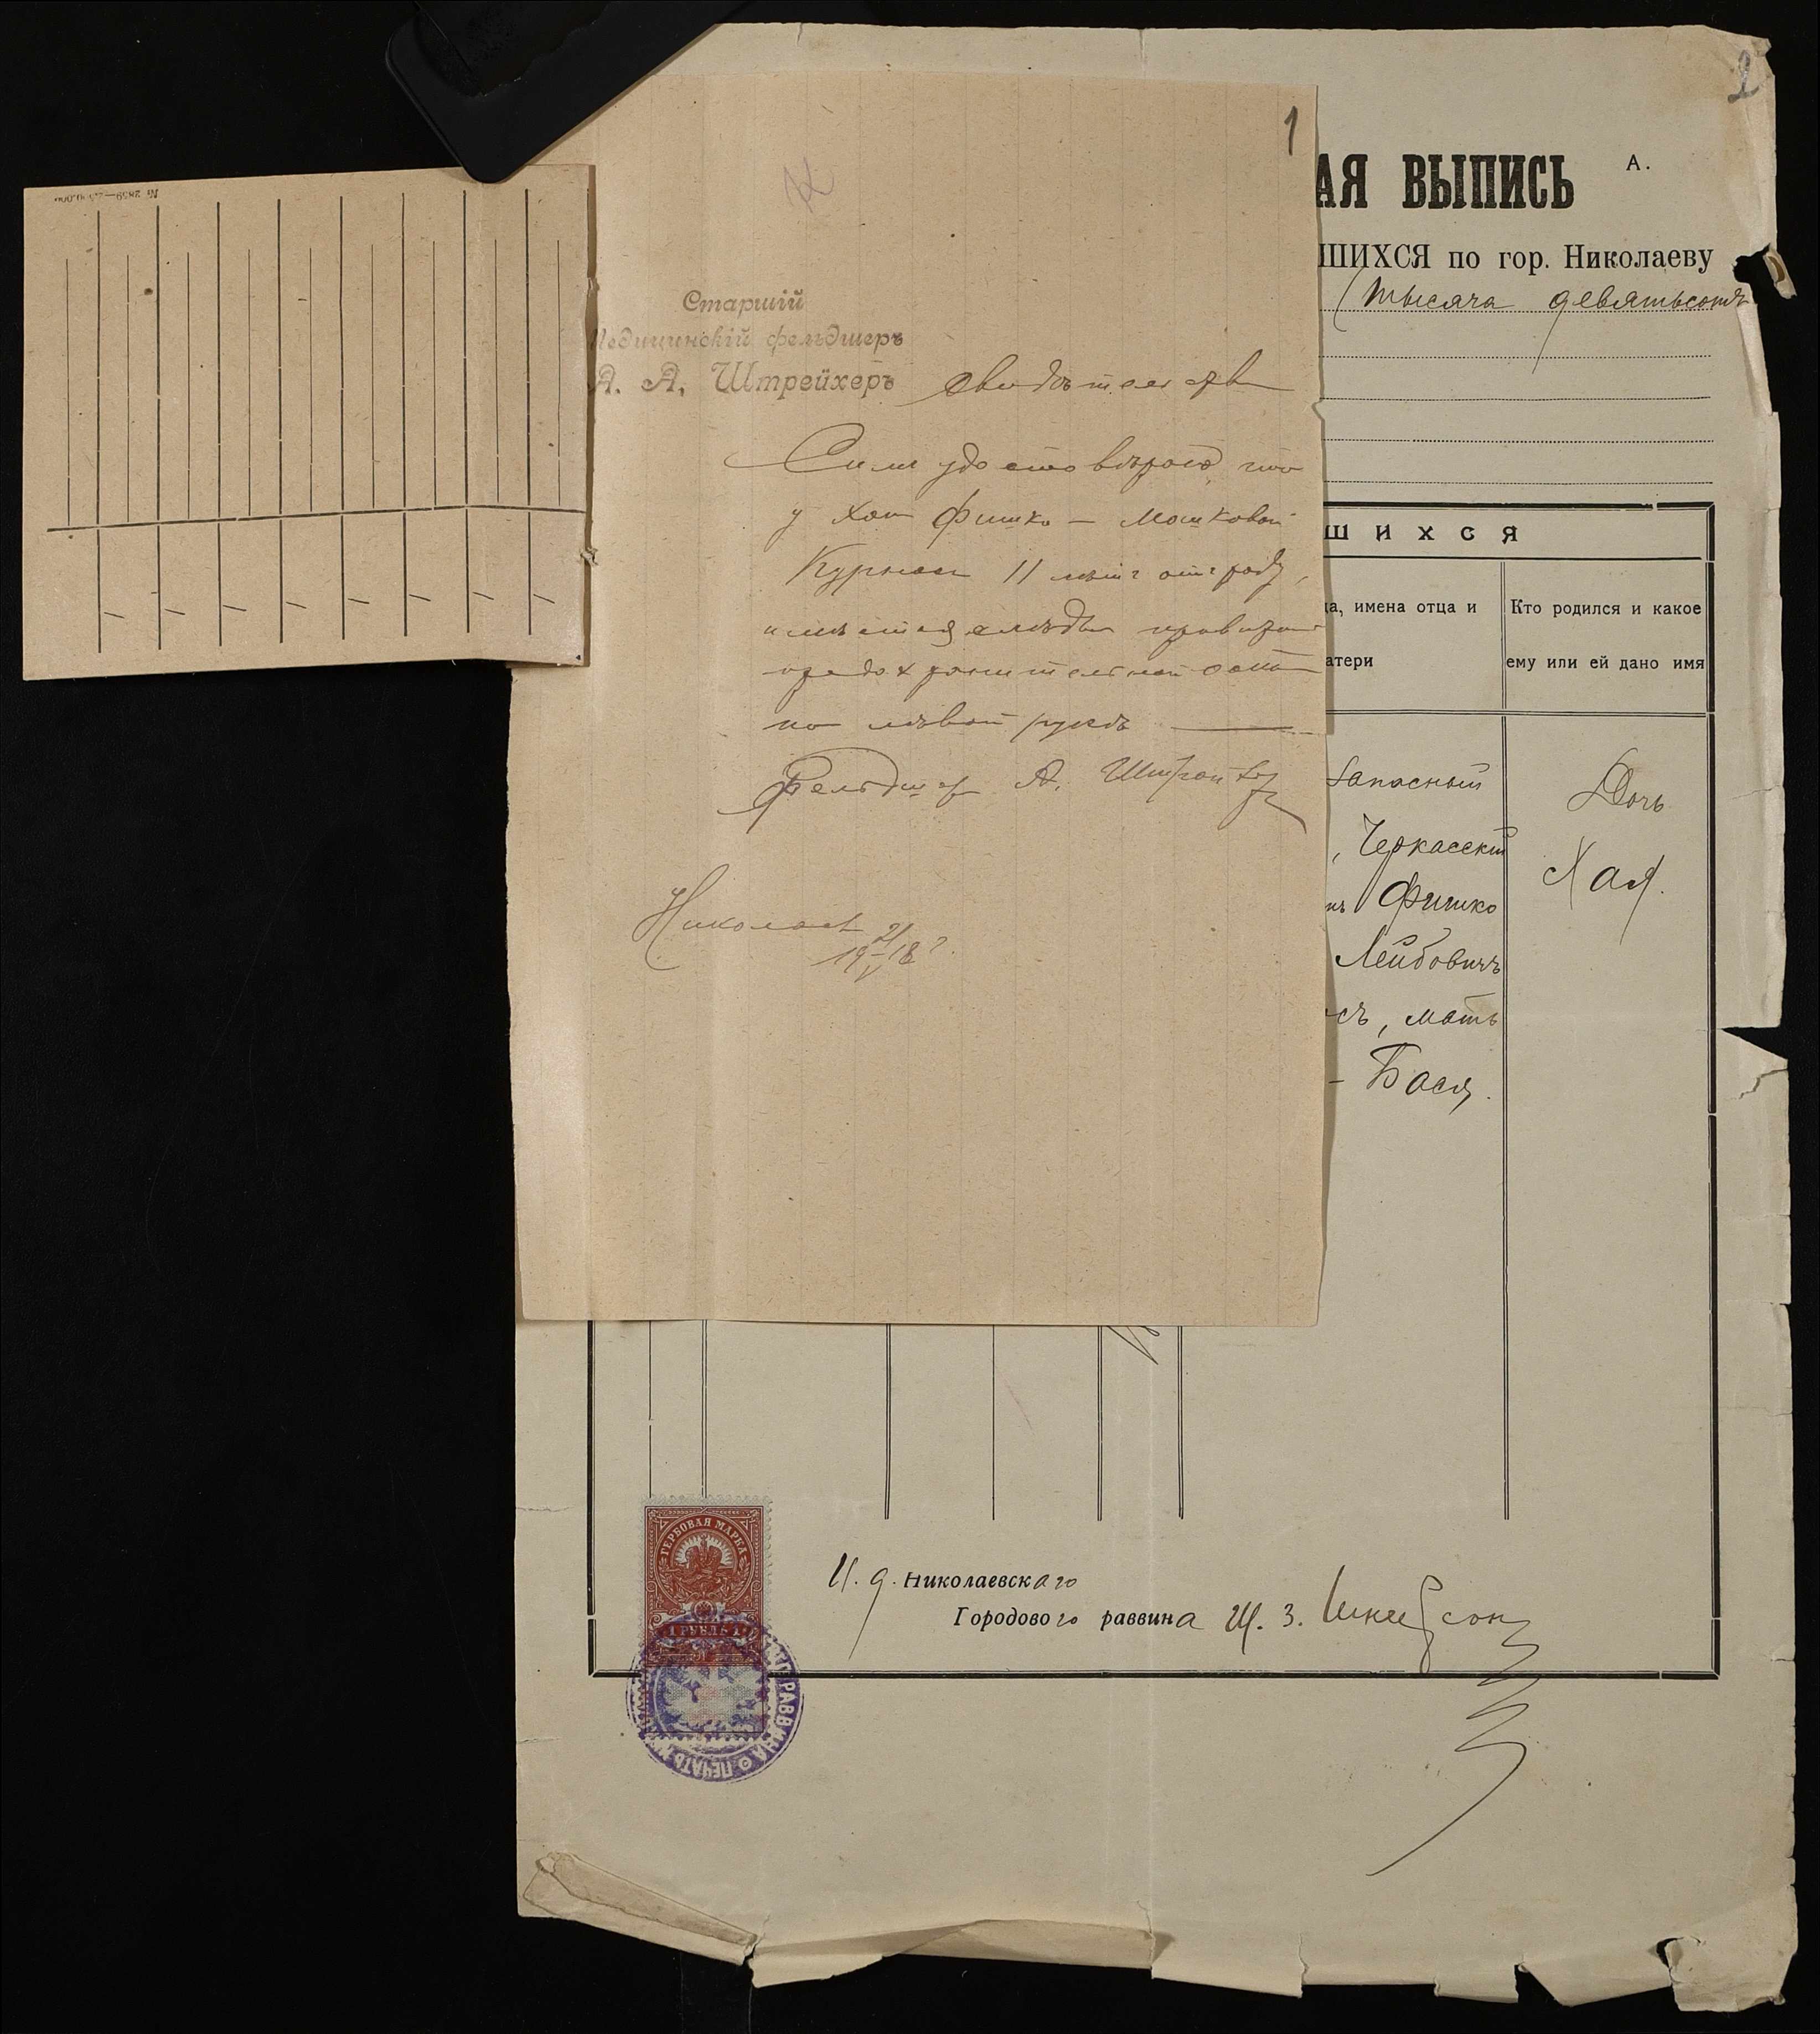 № 2859
1
Старшій
Медицинскій фельдшеръ
А. А. Штрейхеръ
Свидѣтельство
Симъ удостовѣряю, что
у Хаи Фишко — Мошковой
11 лѣтъ отъ роду,
имѣются слѣды
предохранительной оспы
на лѣвой рукѣ
Фельдшеръ А. Штрейхеръ
Николаевъ 21/V 1918 г.
2
АЯ ВЫПИСЬ
А.
ШИХСЯ по гор. Николаеву
(тысяча девятьсотъ
ШИХСЯ
да, имена отца и
атери
Кто родился и какое
ему или ей дано имя
Запасный
, Черкасскій
нъ Фишко
Лейбовичъ
съ, мать
- Бася.
Дочь
Хая.
ГЕРБОВАЯ МАРКА
1 РУБЛЬ 1
РАВВИНА
ПЕЧАТЬ
И. д. Николаевскаго
Городового раввина Ш. З.